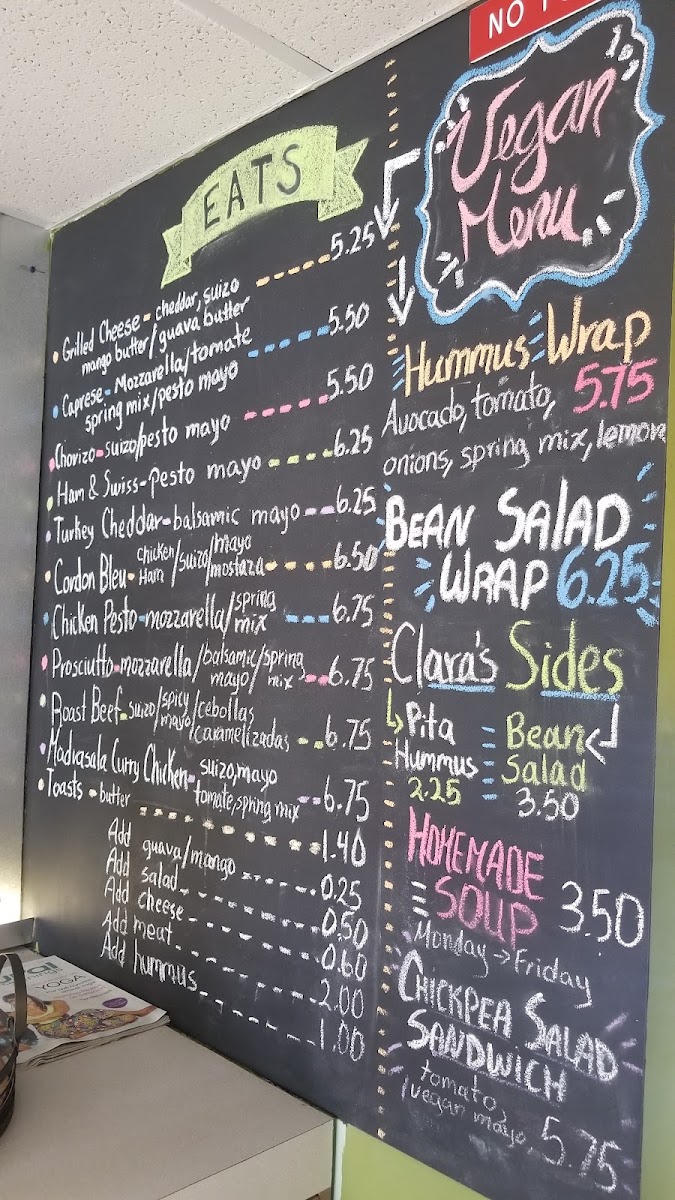 NO
EATS
Grilled Cheese - cheddar, suizo
mango butter/guava butter ------ 5.25
Caprese - Mozzarella/tomate
spring mix/pesto mayo ------ 5.50
Chorizo - suizo/pesto mayo ------ 5.50
Ham & Swiss - pesto mayo ---- 6.25
Turkey Cheddar - balsamic mayo --- 6.25
Cordon Bleu - chicken/Ham/suizo/mayo/mostaza ---- 6.50
Chicken Pesto - mozzarella/spring mix --- 6.75
Prosciutto - mozzarella/balsamic mayo/spring mix -- 6.75
Roast Beef - suizo/spicy mayo/cebollas
caramelizadas -- 6.75
Madrasala Curry Chicken - suizo, mayo
tomate, spring mix -- 6.75
Toasts - butter -------- 1.40
Add guava/mango ------ 0.25
Add salad -------- 0.50
Add cheese -------- 0.60
Add meat -------- 2.00
Add hummus ------ 1.00
Vegan
Menu
Hummus Wrap
5.75
Avocado, tomato,
onions, spring mix, lemon
BEAN SALAD
WRAP 6.25
Clara's Sides
Pita
Hummus
2.25
Bean
Salad
3.50
HOMEMADE
SOUP 3.50
Monday → Friday
CHICKPEA SALAD
SANDWICH
tomato,
/vegan mayo 5.75
YOGA